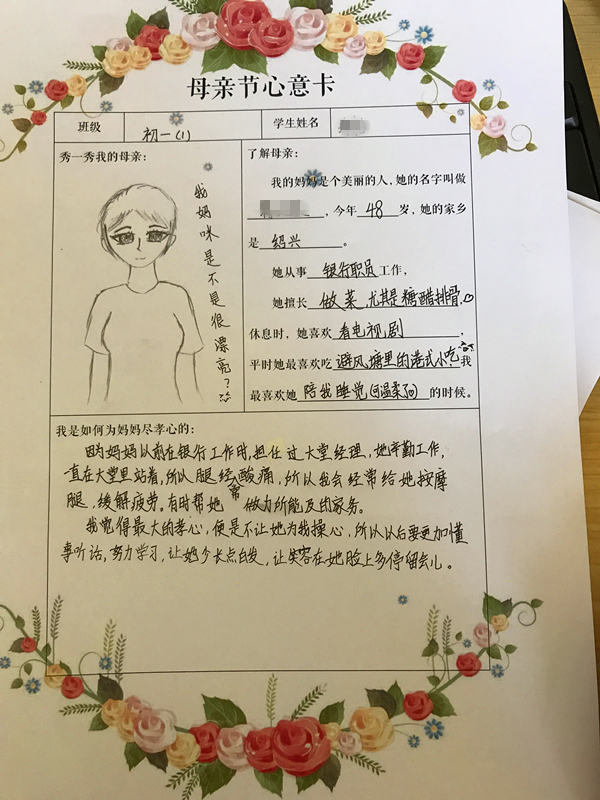 母亲节心意卡
班级 初一(1) 学生姓名
秀一秀我的母亲:
我妈咪是不是很漂亮?
了解母亲:
我的妈妈是个美丽的人,她的名字叫做
,今年 48 岁,她的家乡
是 绍兴 。
她从事 银行职员 工作,
她擅长 做菜,尤其是糖醋排骨
休息时,她喜欢 看电视剧 ,
平时她最喜欢吃 避风塘里的港式小吃 我
最喜欢她 陪我睡觉(可温柔了) 的时候。
我是如何为妈妈尽孝心的:
因为妈妈以前在银行工作时,担任过大堂经理,她辛勤工作,
一直在大堂里站着,所以腿经常酸痛,所以我会经常给她按摩
腿,缓解疲劳。有时帮她做力所能及的家务。
我觉得最大的孝心,便是不让她为我操心,所以以后要更加懂
事听话,努力学习,让她少长点白发,让笑容在她脸上多停留会儿。